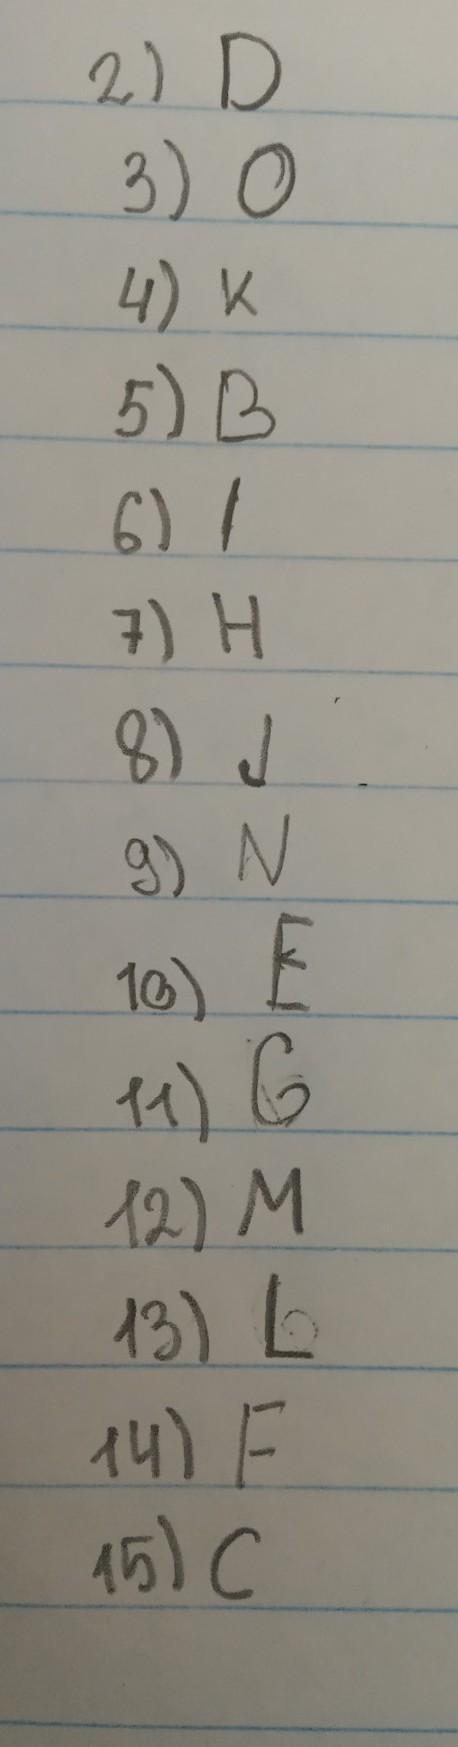 2) D
3) O
4) K
5) B
6) I
7) H
8) J
9) N
10) E
11) G
12) M
13) L
14) F
15) C